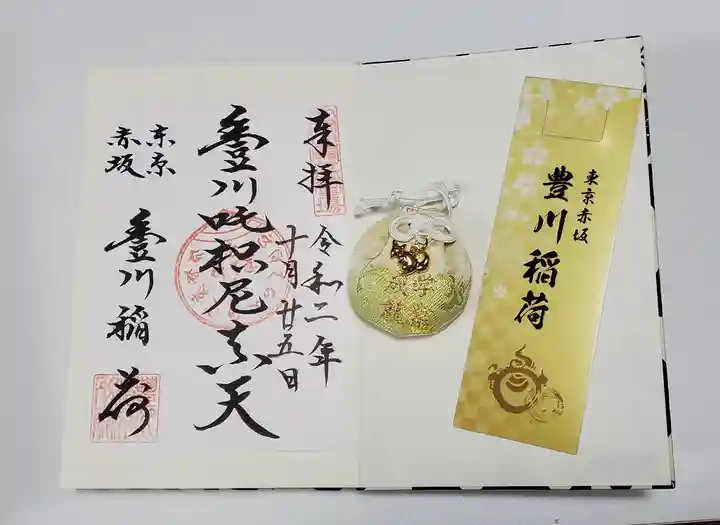 奉拝
令和二年
十月廿五日
豊川吒枳尼真天
東京
赤坂
豊川稲荷
東京赤坂
豊川稲荷